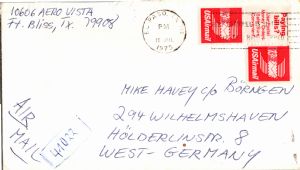 10606 AERO VISTA
Ft. Bliss, Tx. 79908
EL PASO, TX
PM
1975
USAirmail
USAirmail
MIKE HAVEY c/o BORNGEN
294 WILHELMSHAVEN
HÖLDERLINSTR. 8
WEST-GERMANY
AIR
MAIL
41022